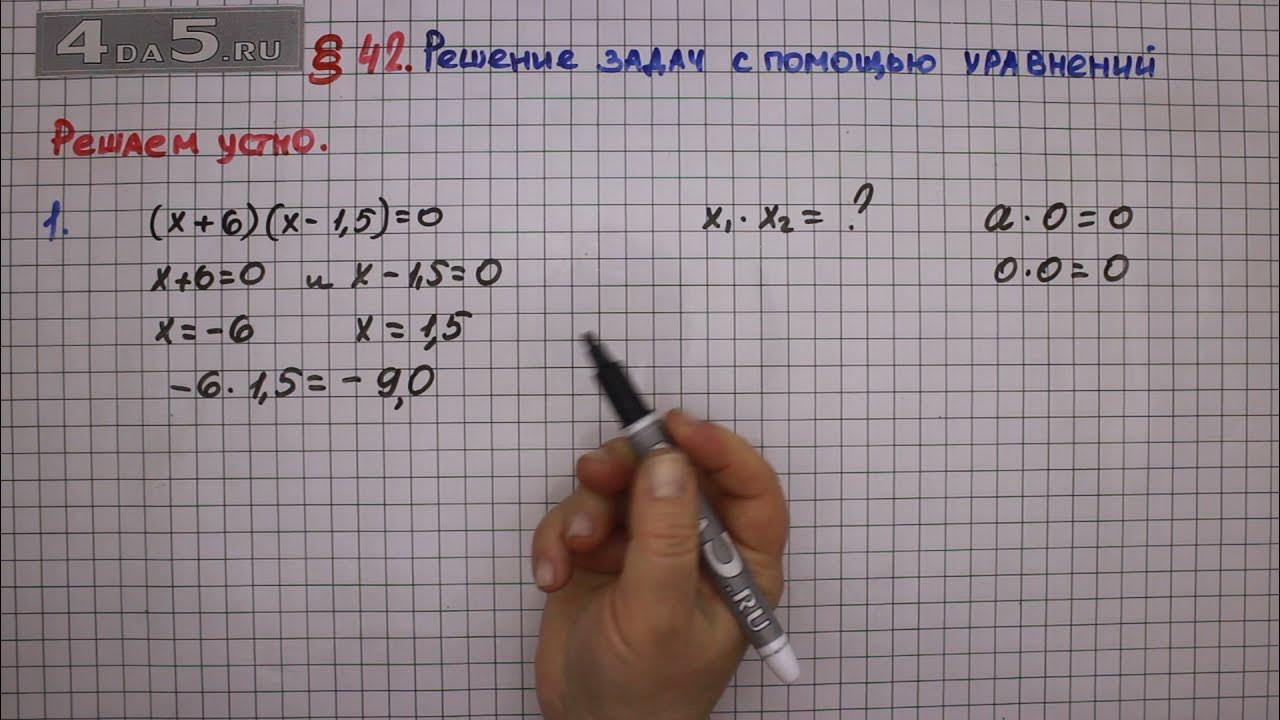 4DA5.RU
§ 42. Решение задач с помощью уравнений
Решаем устно.
1. (x+6)(x-1,5)=0
x+6=0 и x-1,5=0
x=-6 x=1,5
-6·1,5=-9,0
x₁·x₂=?
a·0=0
0·0=0
.RU